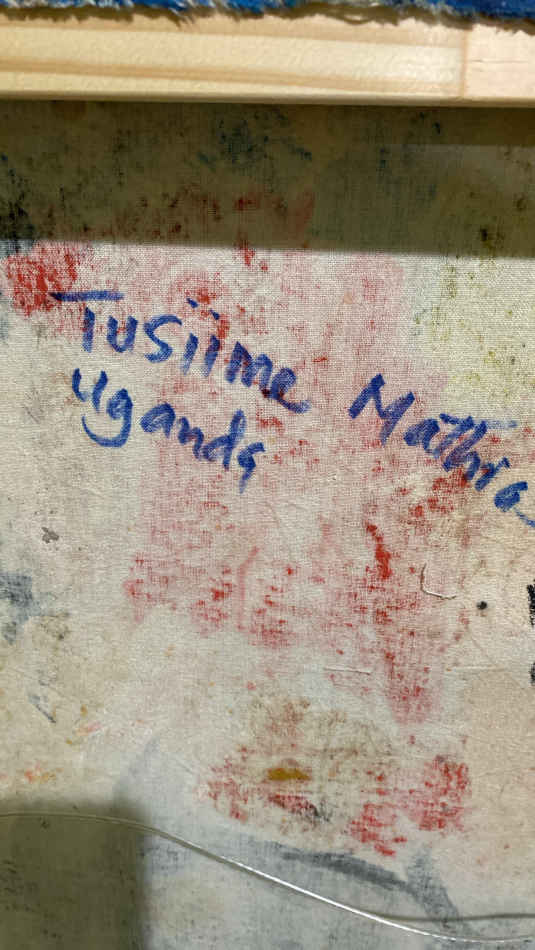 Tusiime Mathias
Uganda